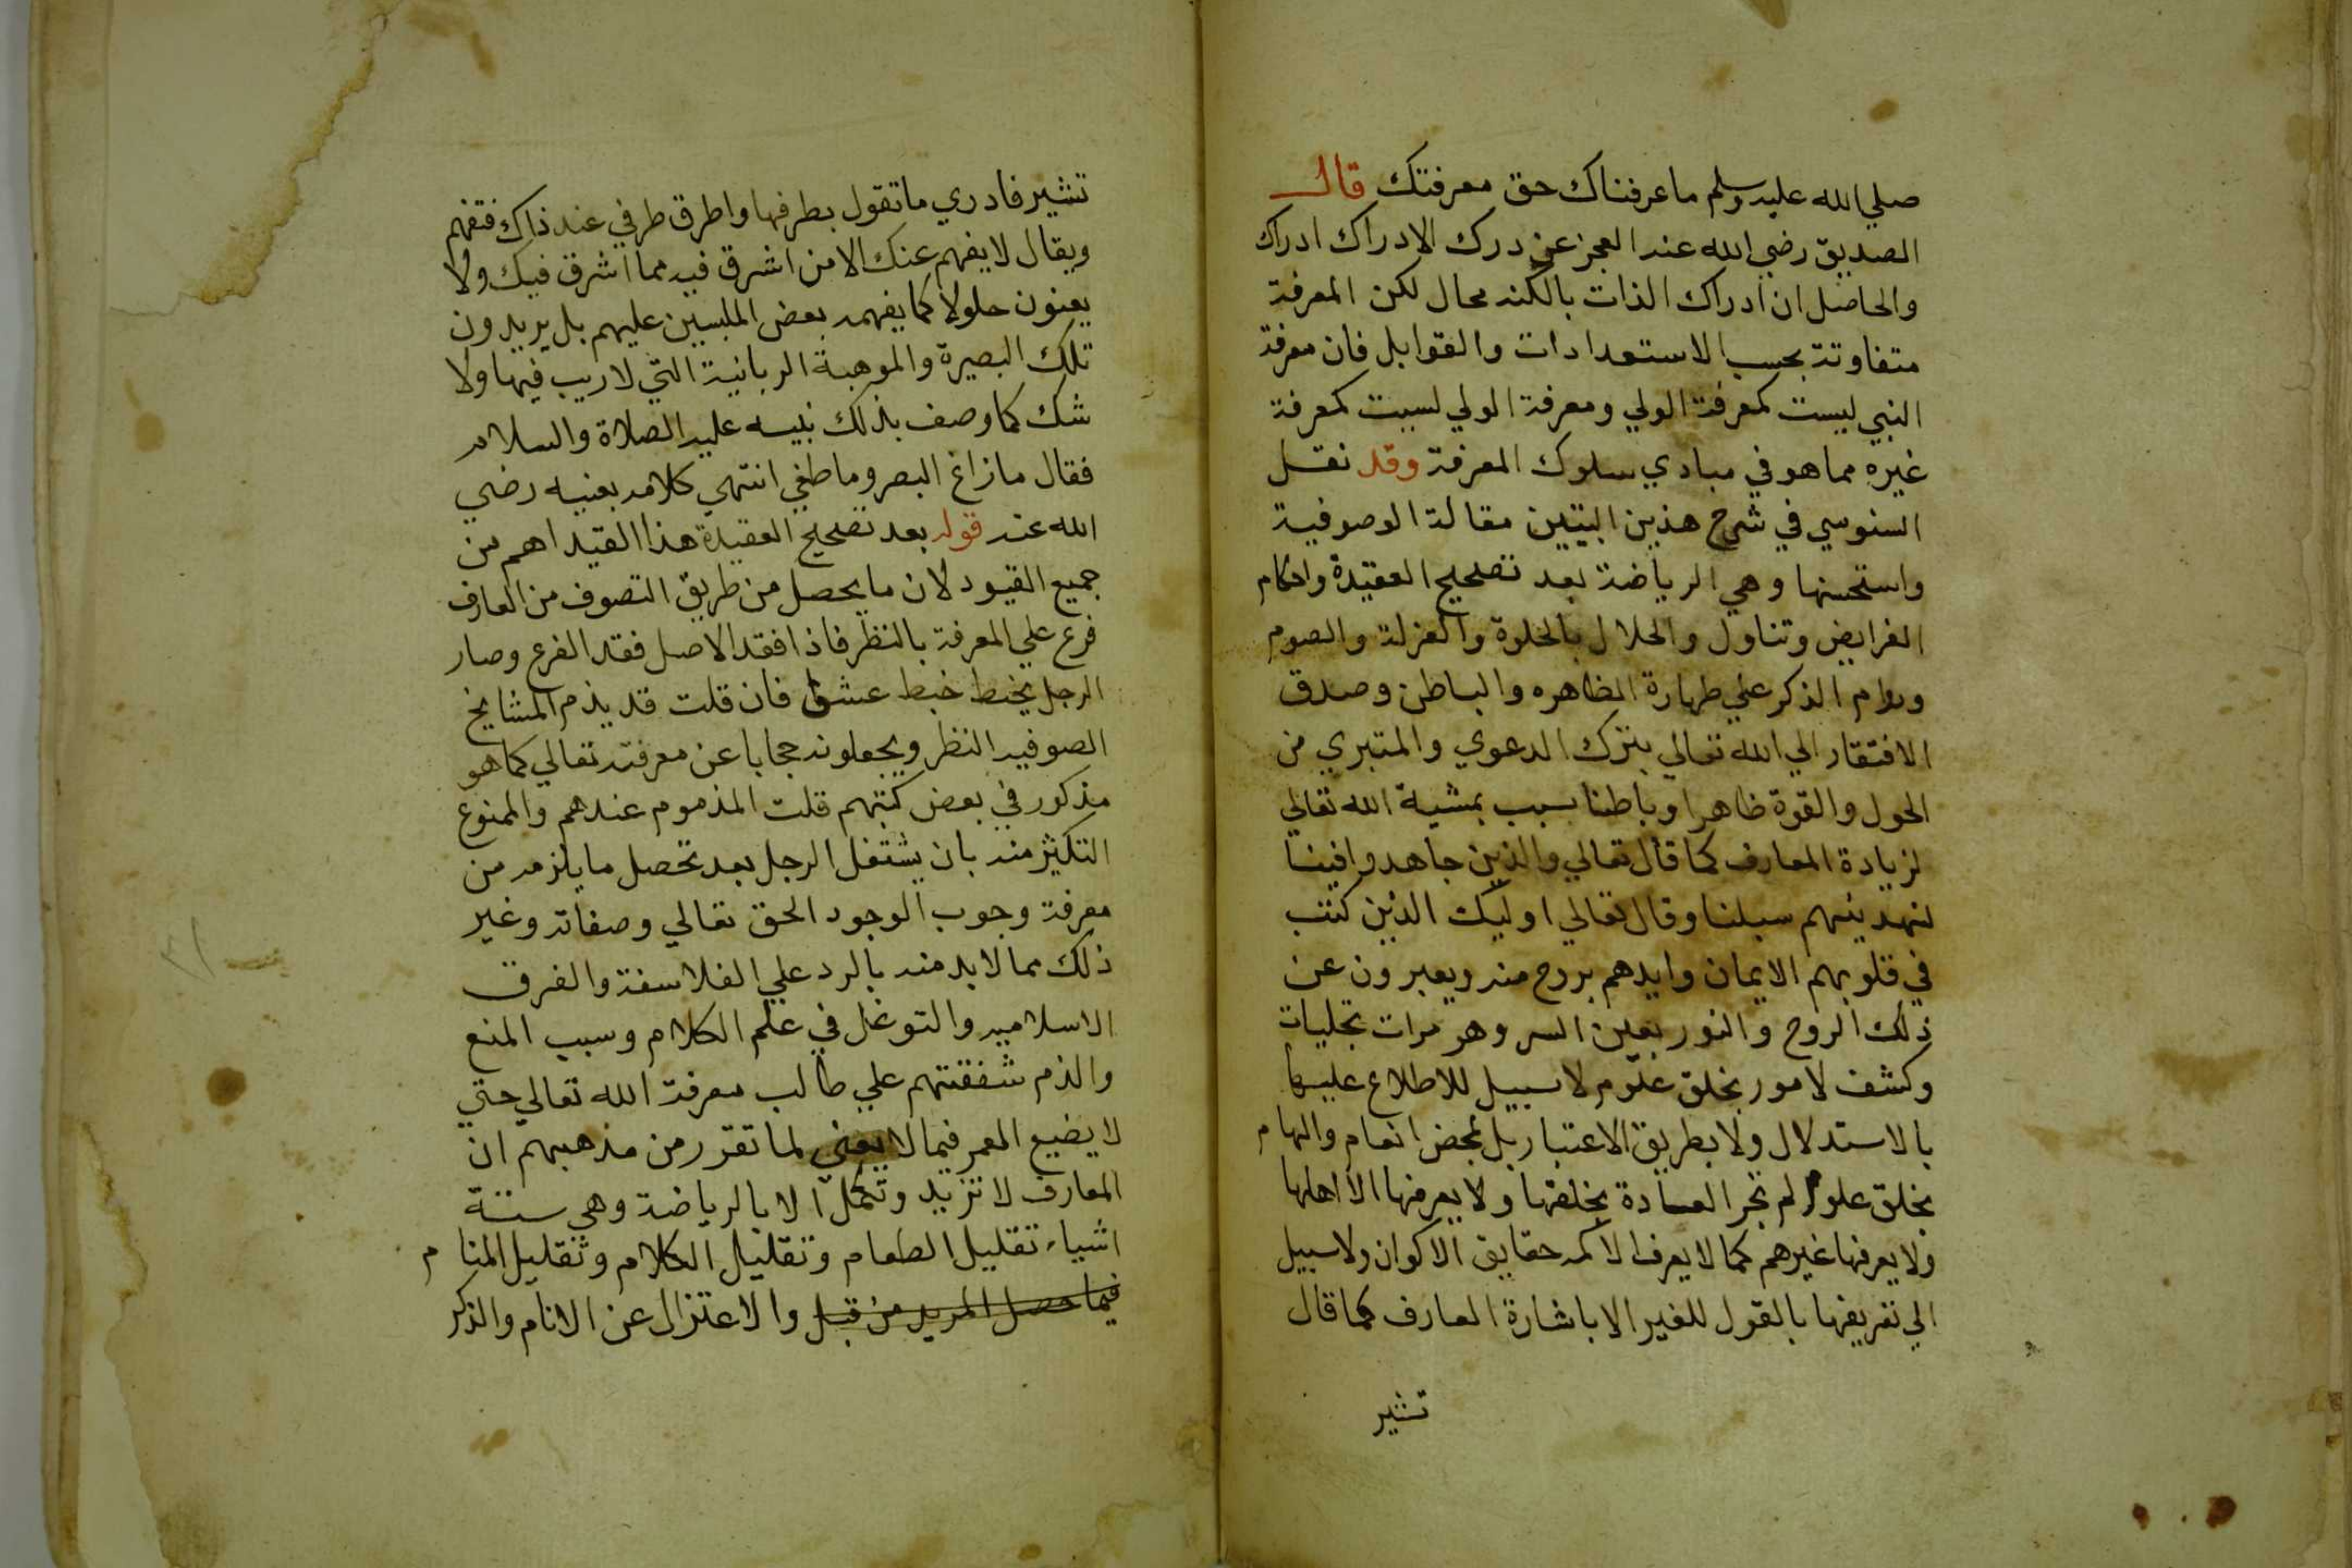 صلي الله عليه وسلم ما عرفناك حق معرفتك قال
الصديق رضي الله عنه العجز عن درك الادراك ادراك
والحاصل ان ادراك الذات بالكنه محال لكن المعرفة
متفاوتة بحسب الاستعدادات والقوابل فان معرفة
النبي ليست كمعرفة الولي ومعرفة الولي ليست كمعرفة
غيره مما هو في مبادي سلوك المعرفة وقد نقل
السنوسي في شرح هذين البيتين مقالة الوصوفية
واستحسنها وهي الرياضة بعد تصحيح العقيدة واحكام
الفرايض وتناول والحلال بالخلوة والعزلة والصوم
ودوام الذكر علي طهارة الظاهره والباطن وصدق
الافتقار الي الله تعالي بترك الدعوي والمتبري من
الحول والقوة ظاهرا وباطنا سبب بمشية الله تعالي
لزيادة المعارف كما قال تعالي والذين جاهدوا فينا
لنهدينهم سبلنا وقال تعالي اوليك الذين كتب
في قلوبهم الايمان وايدهم بروح منه ويعبرون عن
ذلك الروح والنور بعين السر وهر مرات تجليات
وكشف لامور بخلق علوم لا سبيل للاطلاع عليها
بالاستدلال ولا بطريق الاعتبار بل بمحض انعام والهام
بخلق علوم لم تجر العادة بخلقها ولا يعرفها الا اهلها
ولا يعرفها غيرهم كما لا يعرف الاكمه حقايق الاكوان ولا سبيل
الي تعريفها بالقول للغير الا باشارة العارف كما قال
تشير
تشير فادري ما تقول بطرفها واطرق طرفي عند ذاك فتفهم
ويقال لا يفهم عنك الا من اشرق فيه مما اشرق فيك ولا
يعنون حلولا كما يفهمه بعض الملبسين عليهم بل يريدون
تلك البصيرة والموهبة الربانية التي لا ريب فيها ولا
شك كما وصف بذلك نبيه عليه الصلاة والسلام
فقال ما زاغ البصر وما طغي انتهي كلامه بعنيه رضي
الله عنه قوله بعد تصحيح العقيدة هذا القيد اهم من
جميع القيود لان ما يحصل من طريق التصوف من العارف
فرع علي المعرفة بالنظر فاذا فقد الاصل فقد الفرع وصار
الرجل يخبط خبط عشوا فان قلت قد يذم المشايخ
الصوفيه النظر ويجعلونه حجابا عن معرفته تعالي كما هو
مذكور في بعض كتبهم قلت المذموم عندهم والممنوع
التكثير منه بان يشتغل الرجل بعد تحصل ما يلزمه من
معرفة وجوب الوجود الحق تعالي وصفاته وغير
ذلك مما لا بد منه بالرد علي الفلاسفة والفرق
الاسلاميه والتوغل في علم الكلام وسبب المنع
والذم شفقتهم علي طالب معرفة الله تعالي حتي
لا يضيع العمر فيما لا يعني لما تقرر من مذهبهم ان
المعارف لا تزيد وتكمل الا بالرياضة وهي ستة
اشياء تقليل الطعام وتقليل الكلام وتقليل المنام
فيما حصل المريد من قبل والاعتزال عن الانام والذكر